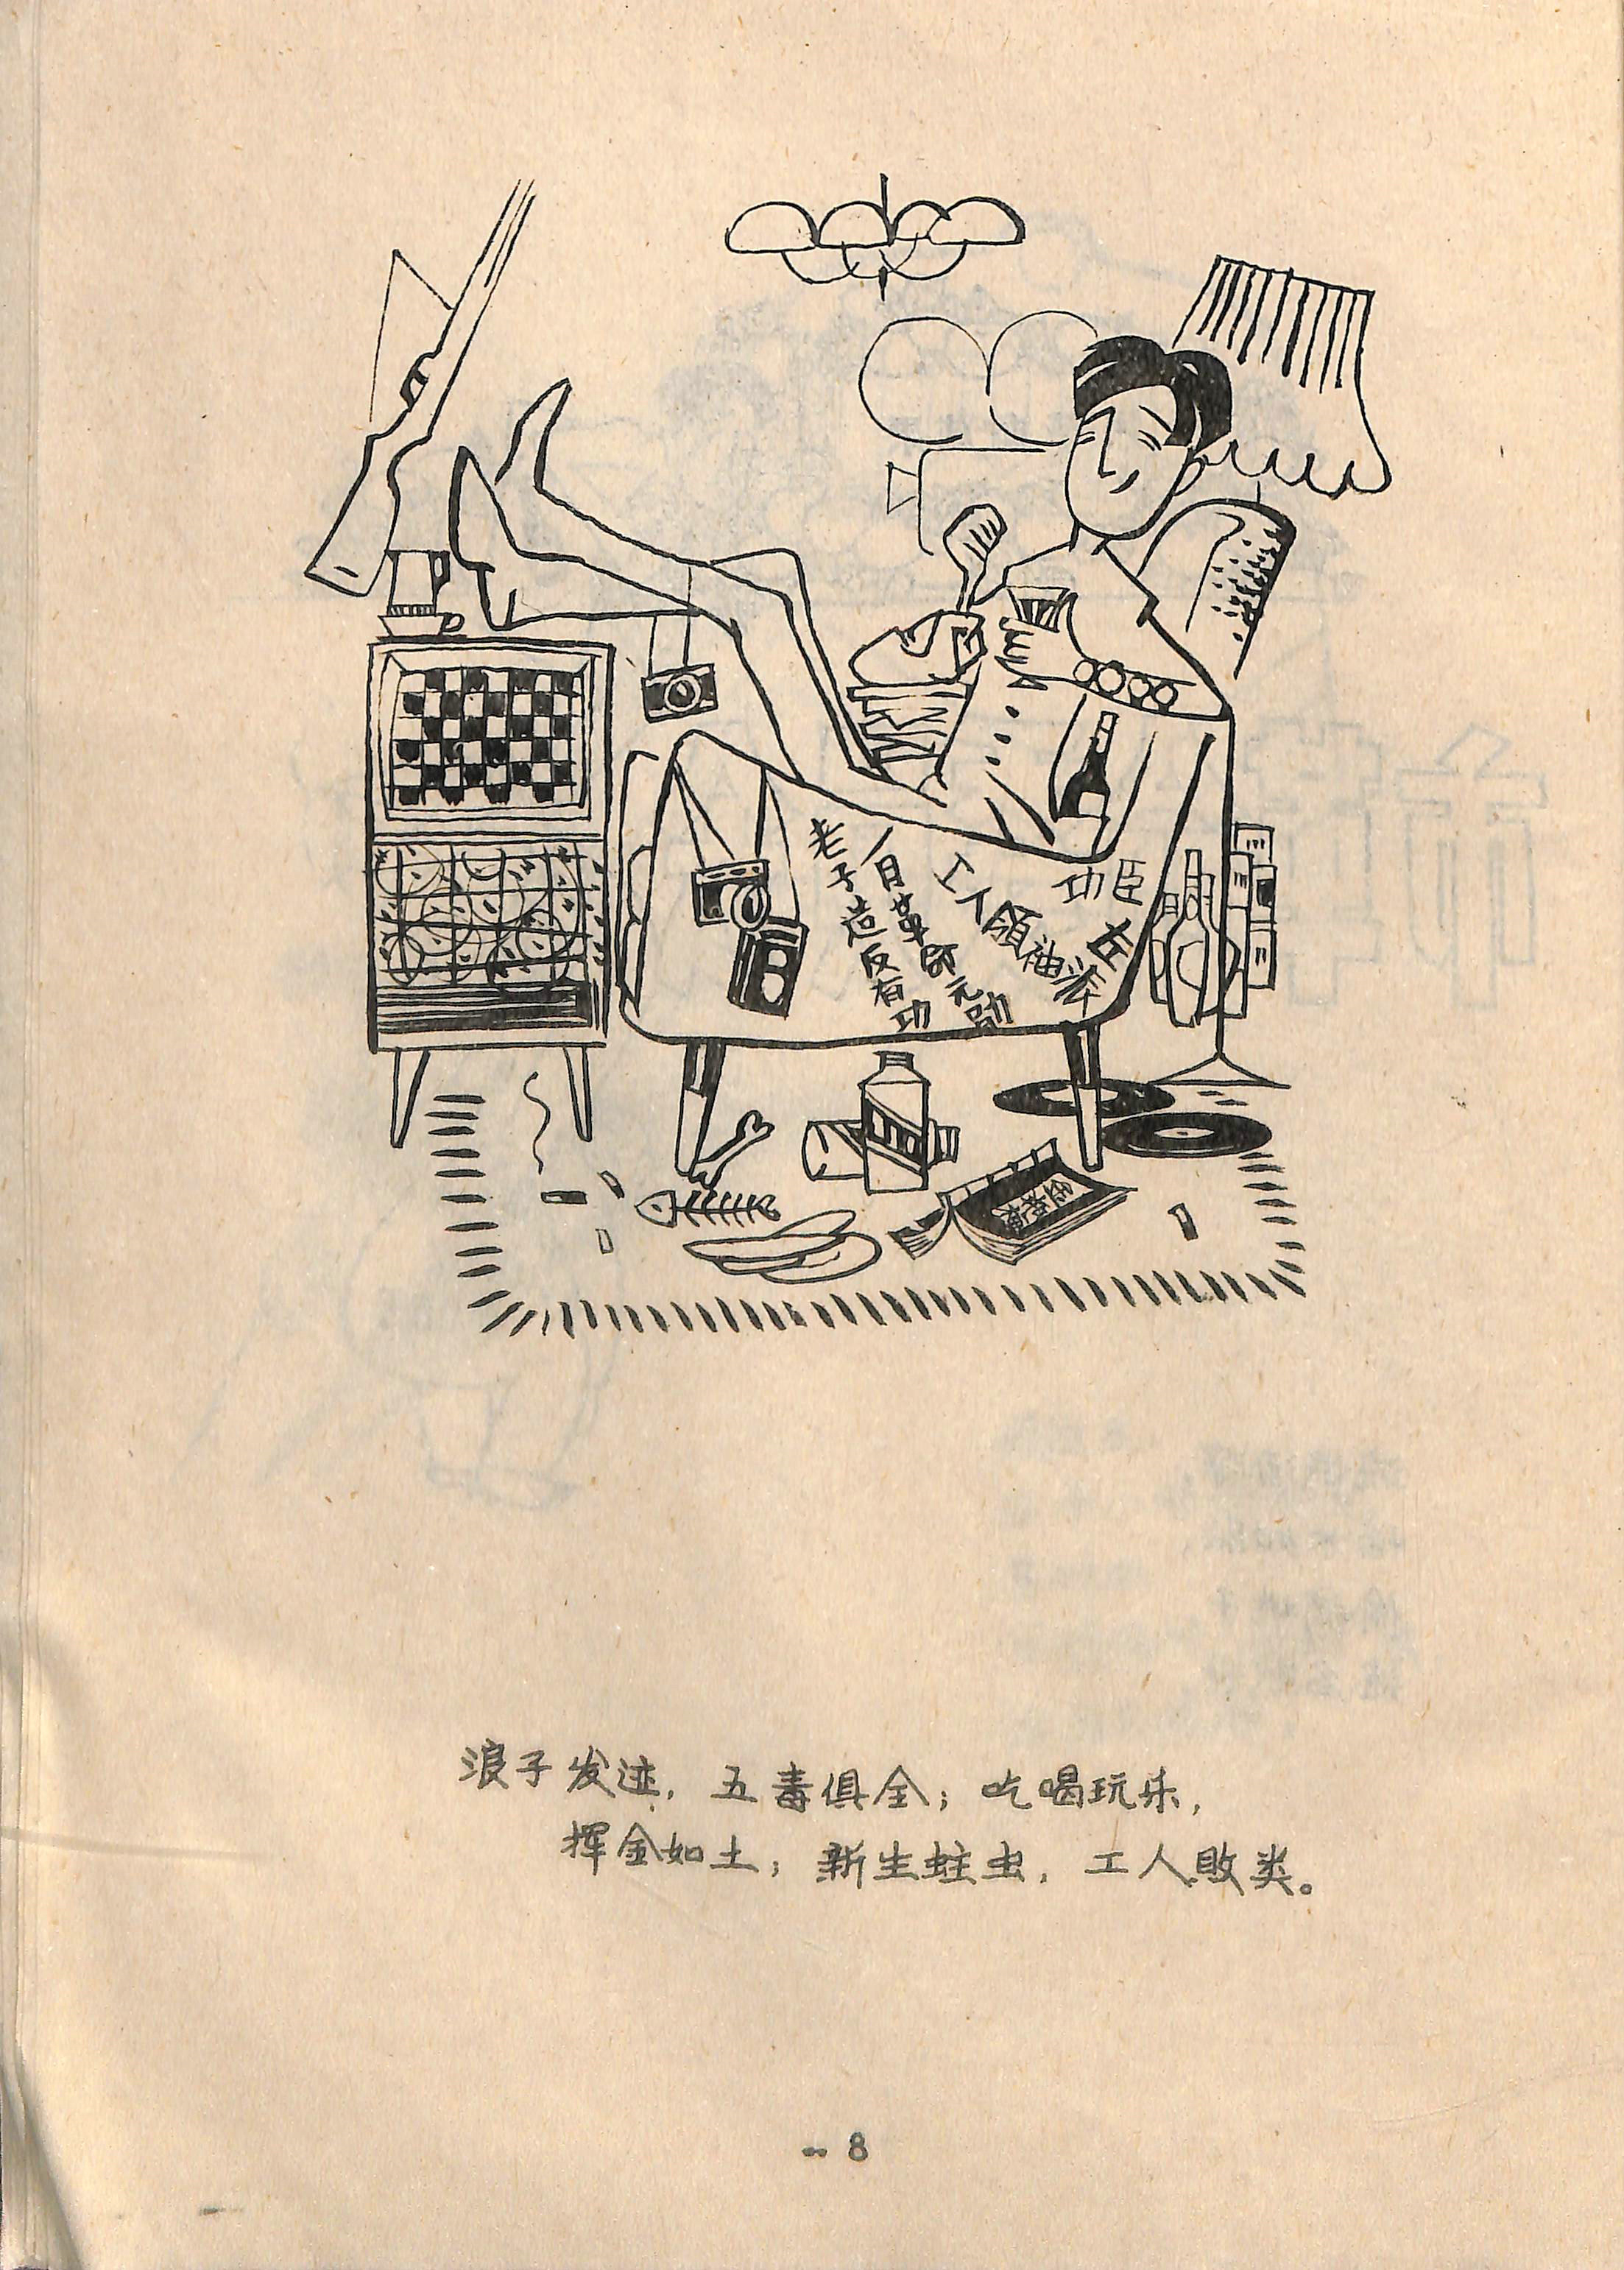 老子造反有功
一月革命元勋
工人领袖
左派
功臣
浪子发迹，五毒俱全；吃喝玩乐，
挥金如土；新生蛀虫，工人败类。
-- 8